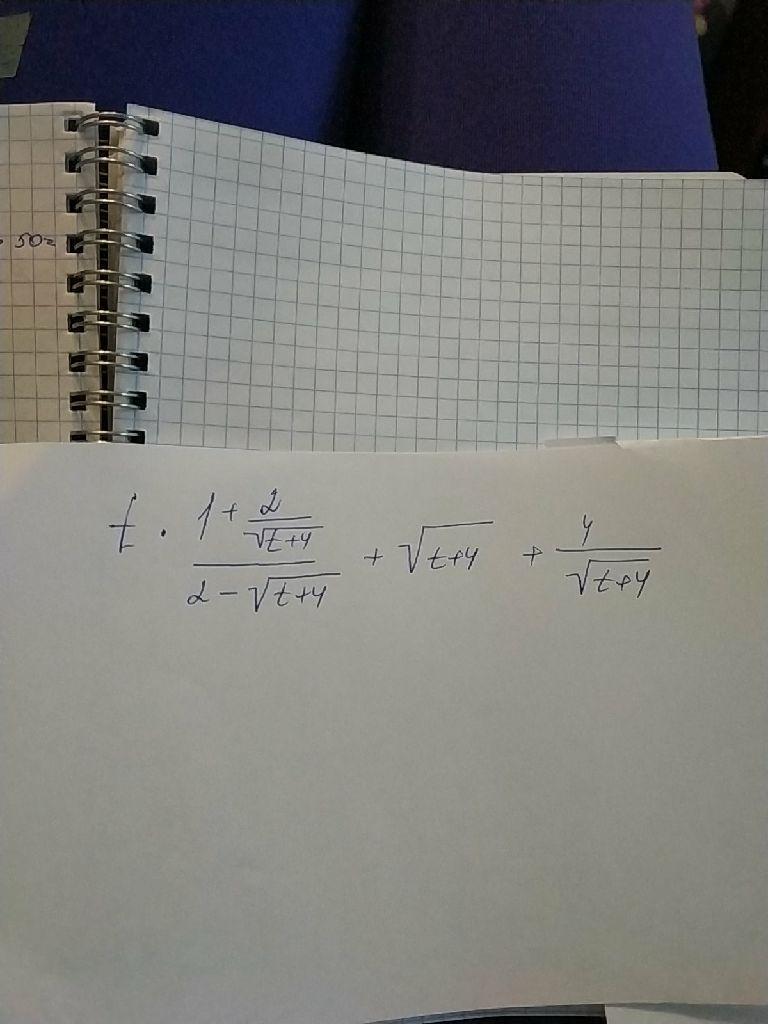 50=
t · (1 + 2/√(t+4))/(2 - √(t+4)) + √(t+4) + 4/√(t+4)